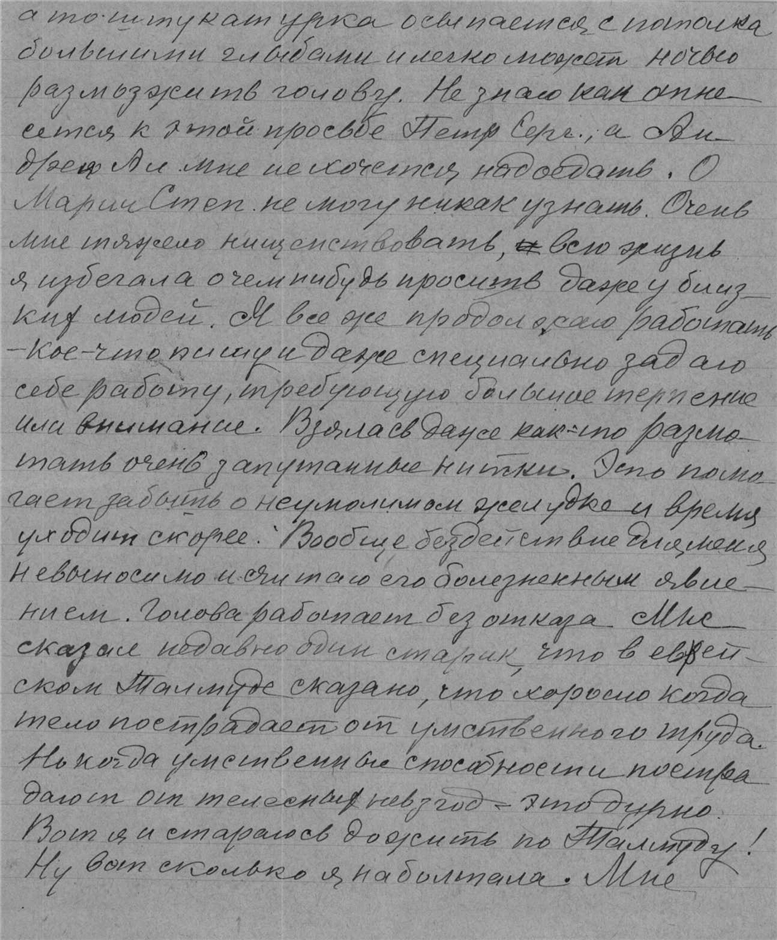 а то штукатурка осыпается с потолка
большими глыбами и легко может ночью
размозжить голову. Не знаю как отне-
сется к этой просьбе Петр Серг., а Ан-
дрея Ал. мне не хочется надоедать. О
Марии Степ. не могу никак узнать. Очень
мне тяжело нищенствовать, всю жизнь
я избегала о чем нибудь просить даже у близ-
ких людей. Я все же продолжаю работать
-Кое-что пишу и даже специально задаю
себе работу, требующую большое терпение
или внимание. Взялась даже как-то размо-
тать очень запутанные нитки. Это помо-
гает забыть о неумолимом желудке и время
уходит скорее. Вообще бездействие для меня
невыносимо и считаю его болезненным явле-
нием. Голова работает без отказа. Мне
сказал недавно один старик, что в еврей-
ском Талмуде сказано, что хорошо когда
тело пострадает от умственного труда.
Но когда умственные способности постра
дают от телесных невзгод - это дурно.
Вот я и стараюсь дожить по Талмуду!
Ну вот сколько я наболтала. Мне